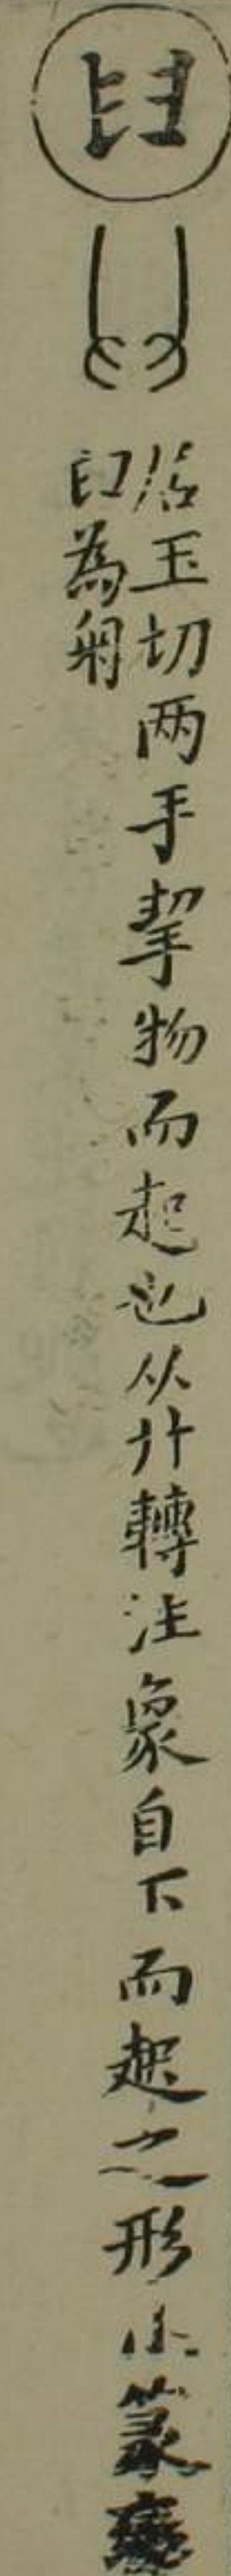 𦥑
居玉切两手挈物而起也从廾轉注象自下而起之形小篆
臼為匊